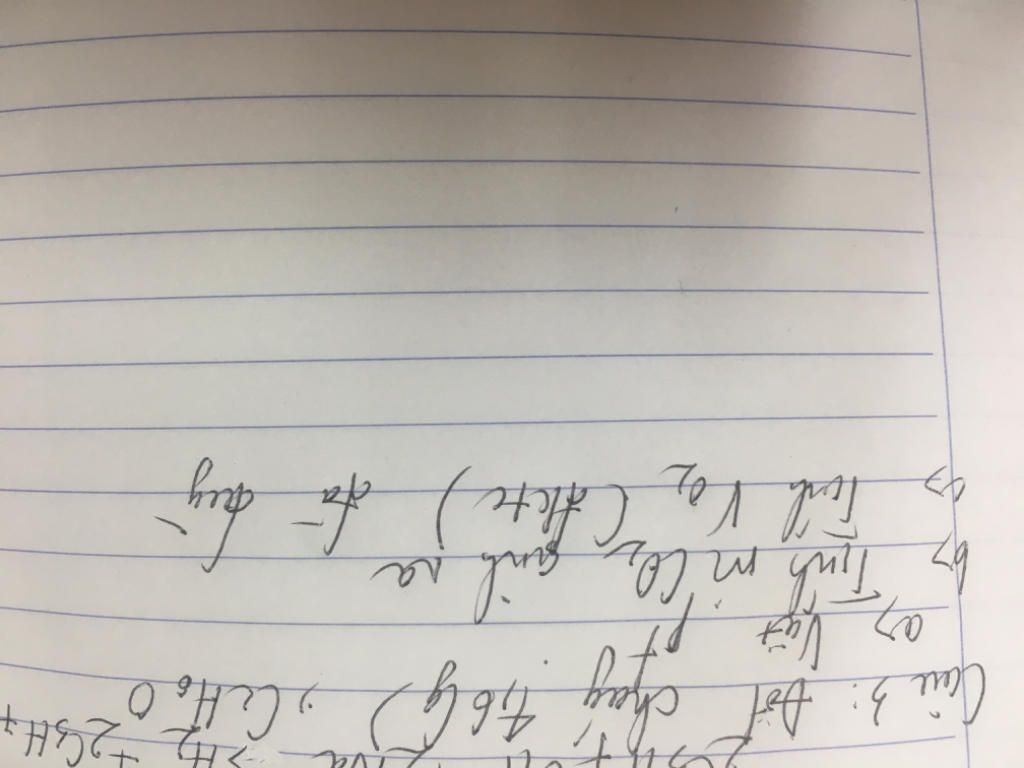 + 2C3H7
→ H2
Câu 3: Đốt cháy 4,6(g) C2H6O
a> Viết pt
b> Tính m CO2 sinh ra
c> Tính V O2 (đktc) đã dùng